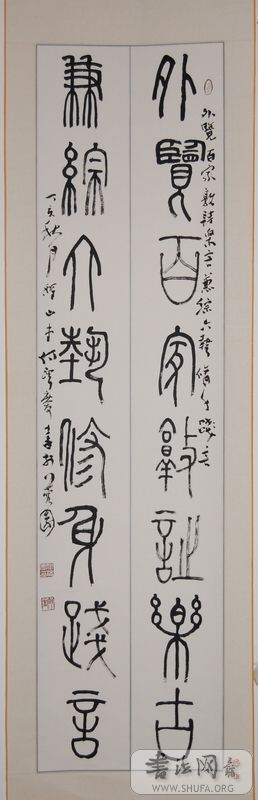 外覽百家敦詩樂古
兼綜六藝修身踐言
外覽百家敦詩樂古兼綜六藝修身踐言
丁亥秋月
書法网
WWW.SHUFA.ORG